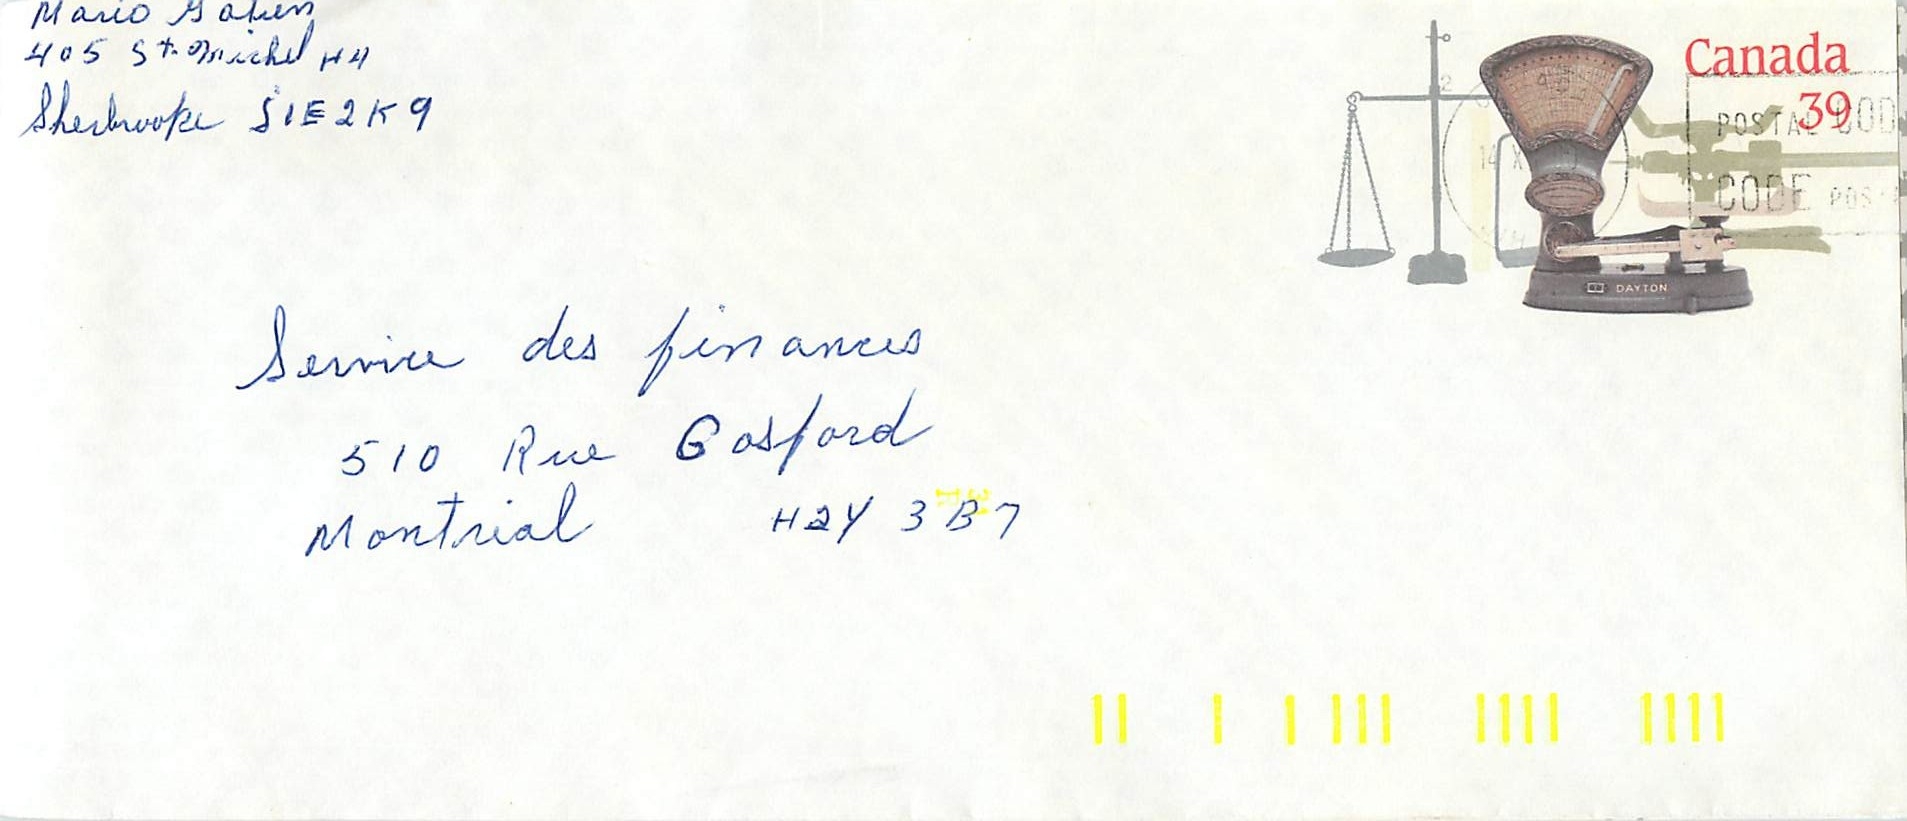 Mario
405 St-Michel #4
Sherbrooke J1E2K9
Canada
39
POSTAL COD
14 X
CODE POST
DAYTON
Service des finances
510 Rue Gosford
Montrial H2Y 3B7